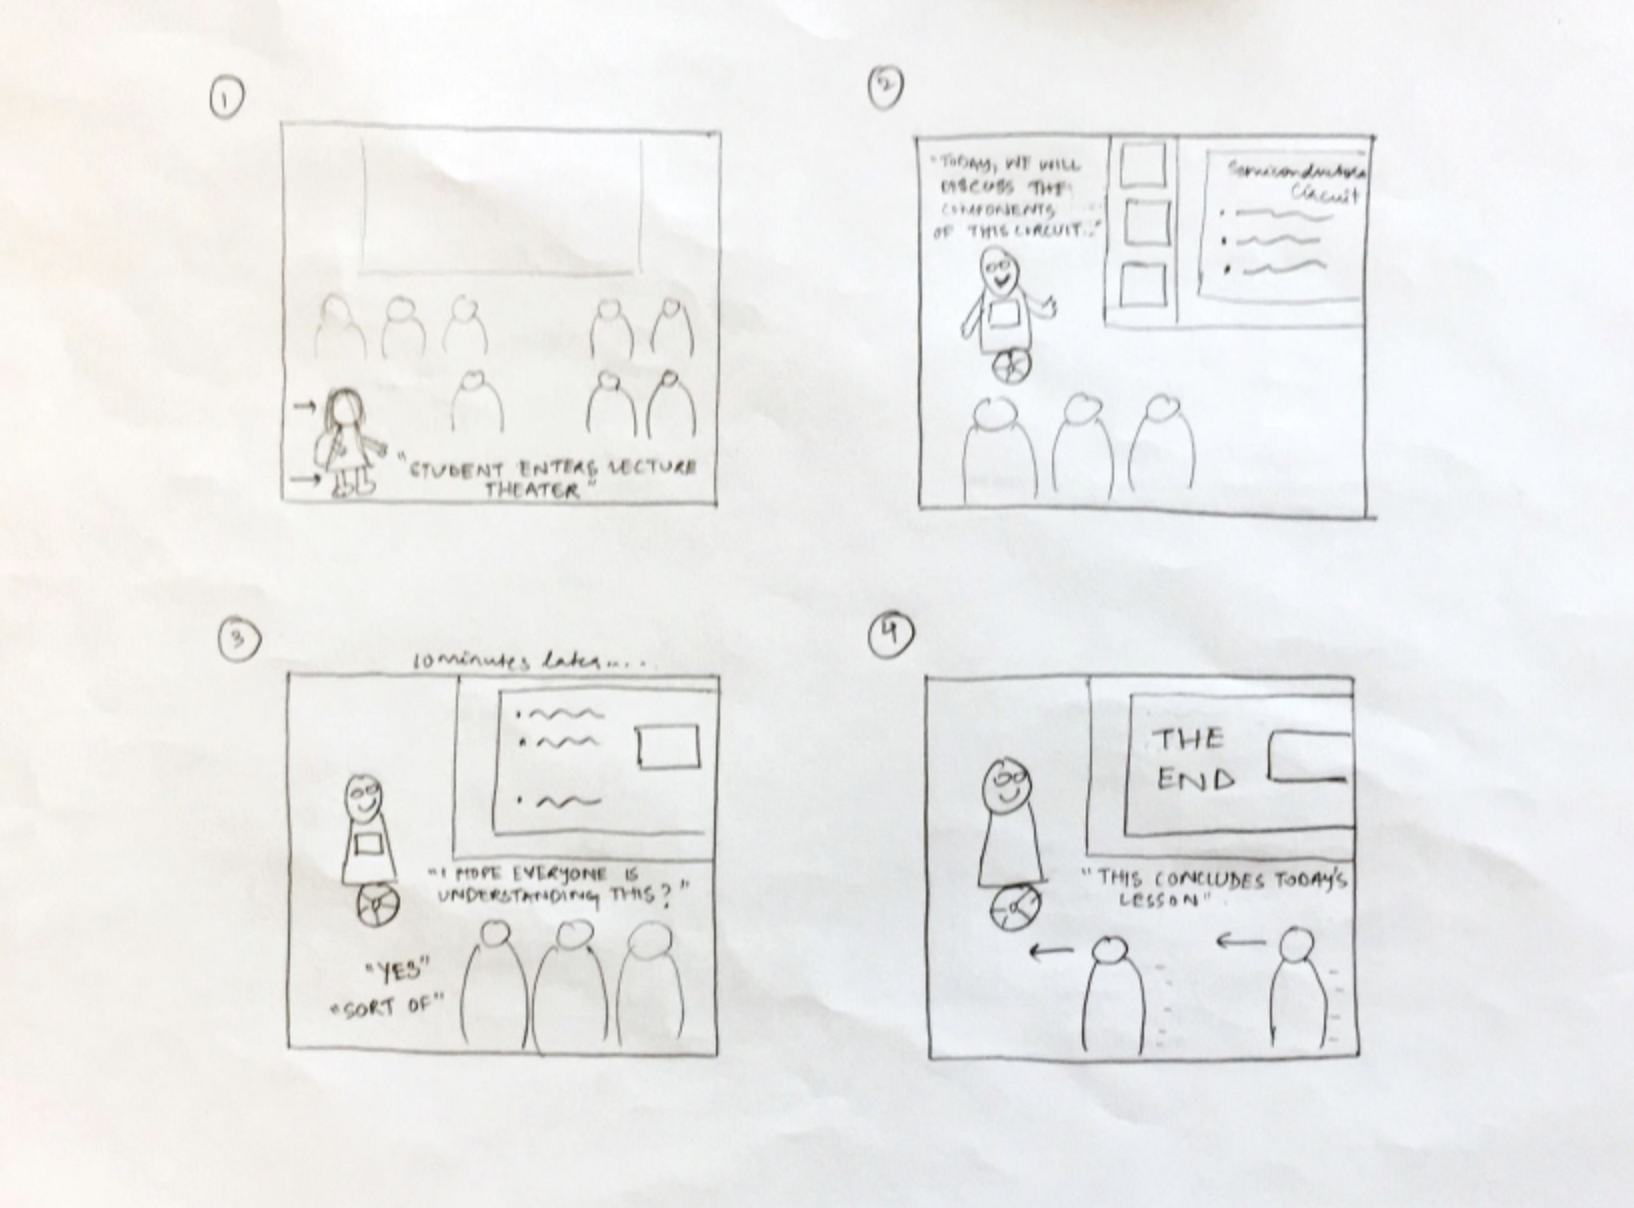 1
"STUDENT ENTERS LECTURE
THEATER"
2
"TODAY, WE WILL
DISCUSS THE
COMPONENTS
OF THIS CIRCUIT..."
Semiconductors
Circuit
3
10 minutes later.....
"I HOPE EVERYONE IS
UNDERSTANDING THIS?"
"YES"
"SORT OF"
4
THE
END
"THIS CONCLUDES TODAY'S
LESSON"